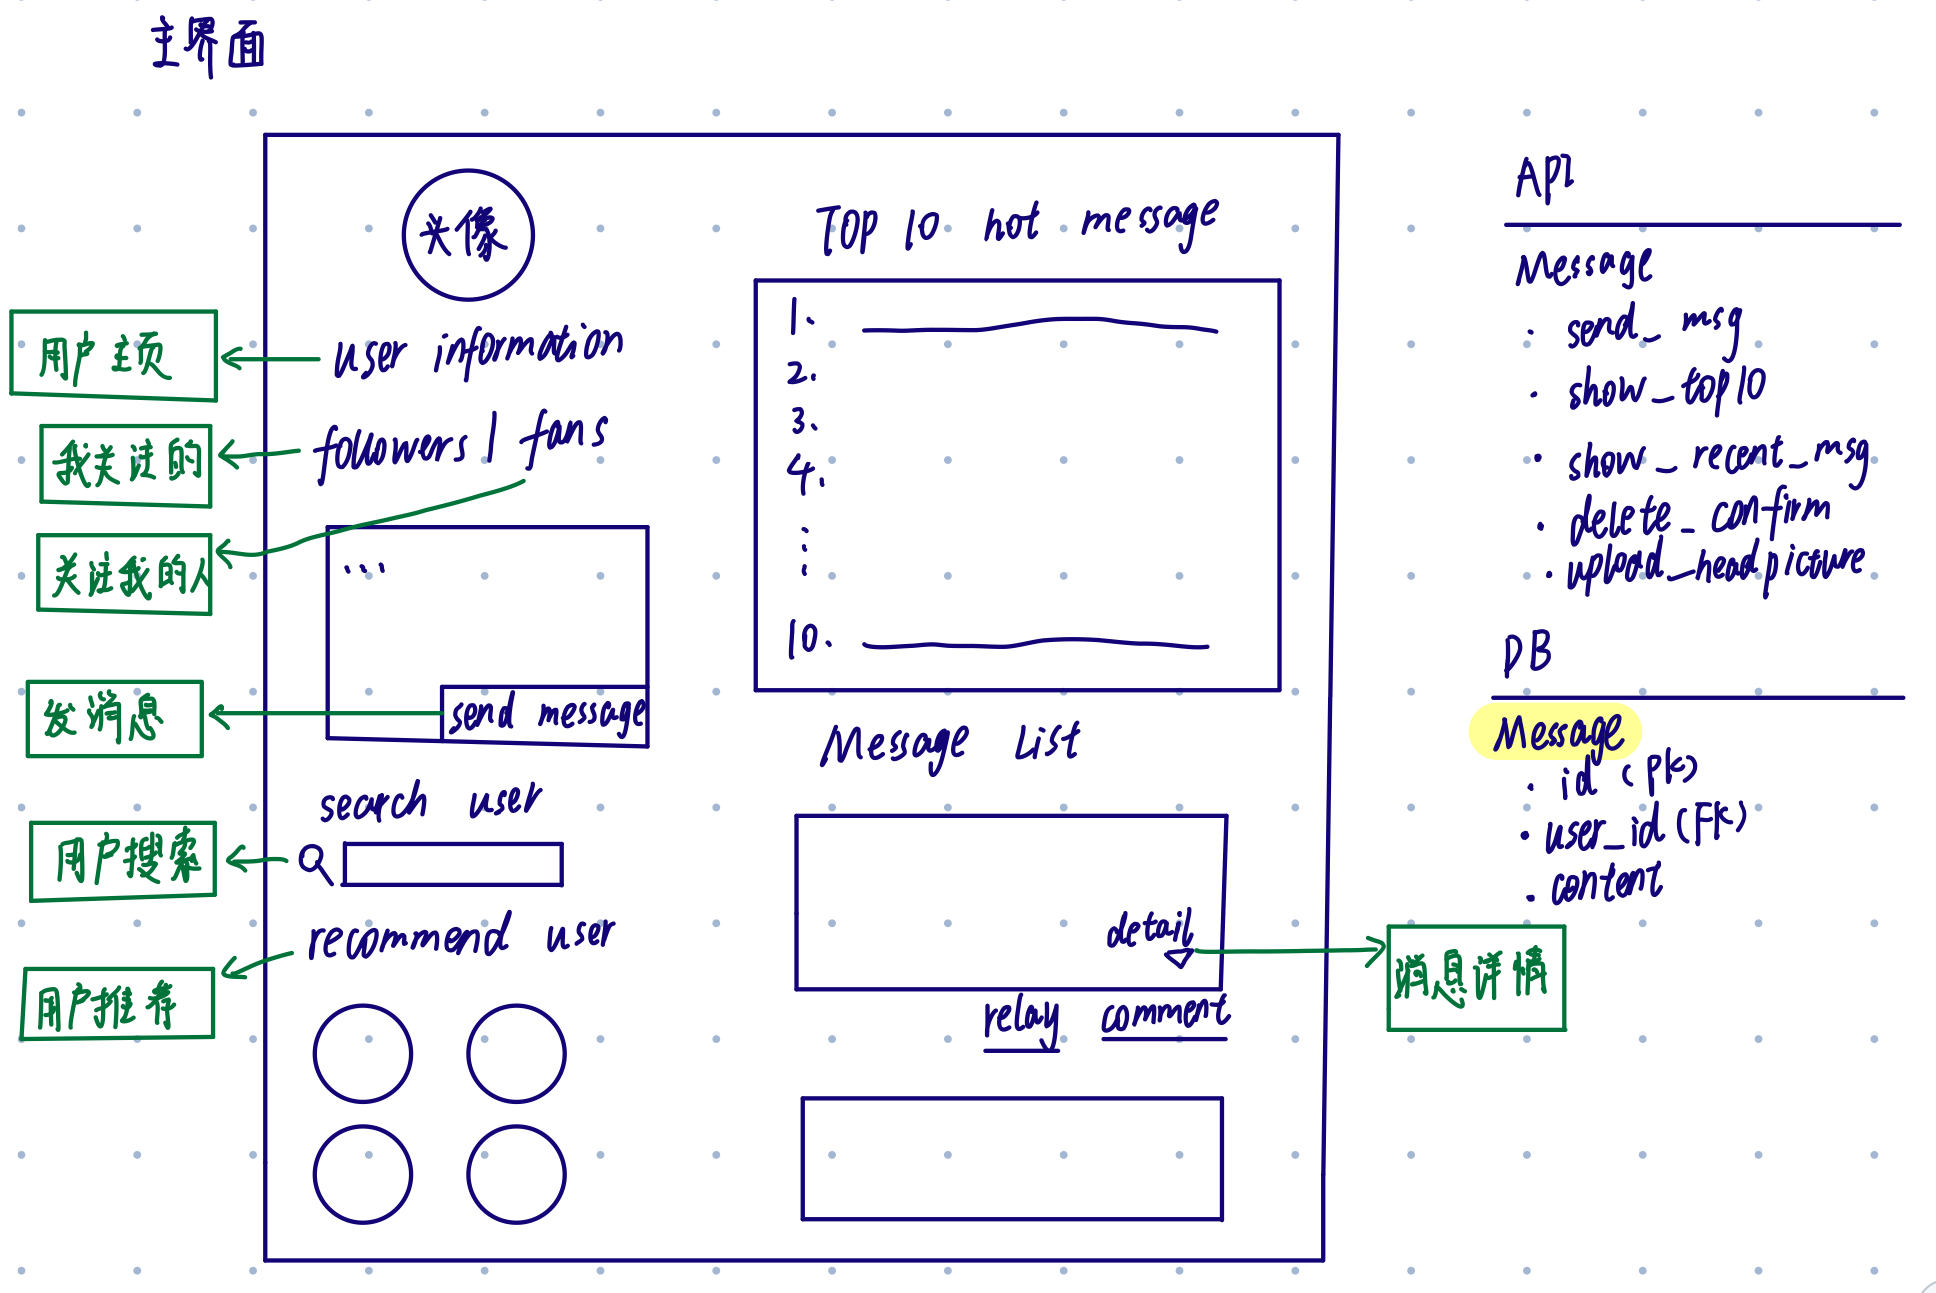 主界面
头像
user information
followers | fans
...
send message
search user
recommend user
用户主页
我关注的
关注我的人
发消息
用户搜索
用户推荐
TOP 10 hot message
1.
2.
3.
4.
10.
Message List
detail
relay comment
消息详情
API
Message
· send_msg
· show_top10
· show_recent_msg
· delete_confirm
· upload_headpicture
DB
Message
· id (PK)
· user_id (FK)
· content